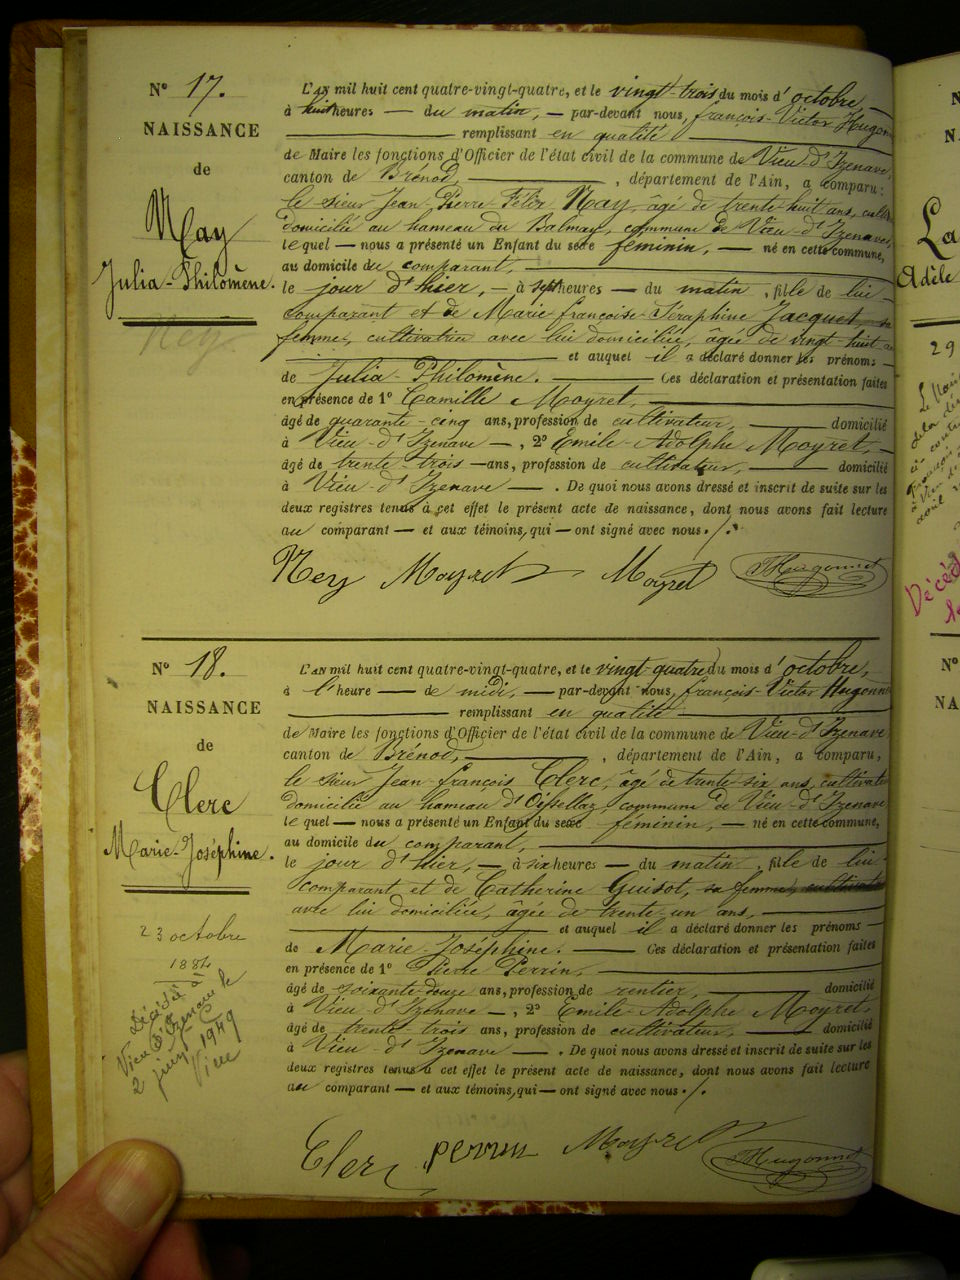 N° 17.
NAISSANCE
de
Nay
Julia-Philomène.
Ney
L'AN mil huit cent quatre-vingt-quatre, et le vingt-trois du mois d'octobre,
à huit heures — du matin, — par-devant nous, françois-Victor Hugonnet
remplissant en qualité
de Maire les fonctions d'Officier de l'état civil de la commune de Vieu-d'Izenave,
canton de Brénod, , département de l'Ain, a comparu :
le sieur Jean-Pierre Félix Nay, âgé de trente-huit ans,
domicilié au hameau du Balmay, commune de Vieu-d'Izenave,
lequel — nous a présenté un Enfant du sexe féminin, — né en cette commune,
au domicile du comparant,
le jour d'hier, — à sept heures — du matin, fille de lui
comparant et de Marie-françoise-Séraphine Jacquet, sa
femme, cultivatrice avec lui domiciliée, âgée de vingt-huit
et auquel il a déclaré donner les prénoms
de Julia-Philomène. Ces déclaration et présentation faites
en présence de 1° Camille Moyret,
âgé de quarante-cinq ans, profession de cultivateur, domicilié
à Vieu-d'Izenave —, 2° Emile-Adolphe Moyret,
âgé de trente-trois — ans, profession de cultivateur, domicilié
à Vieu-d'Izenave — . De quoi nous avons dressé et inscrit de suite sur les
deux registres tenus à cet effet le présent acte de naissance, dont nous avons fait lecture
au comparant — et aux témoins, qui — ont signé avec nous ./.
Ney Moyret Moyret Hugonnet
N° 18.
NAISSANCE
de
Clerc
Marie-Joséphine.
23 octobre
1884
Décédée à
Vieu d'Izenave le
2 juin 1949
L'AN mil huit cent quatre-vingt-quatre, et le vingt-quatre du mois d'octobre,
à l'heure — de midi, — par-devant nous, françois-Victor Hugonnet
remplissant en qualité
de Maire les fonctions d'Officier de l'état civil de la commune de Vieu-d'Izenave
canton de Brénod, , département de l'Ain, a comparu,
le sieur Jean-françois Clerc, âgé de trente-six ans, cultivateur
domicilié au hameau d' commune de Vieu-d'Izenave
lequel — nous a présenté un Enfant du sexe féminin, — né en cette commune,
au domicile du comparant,
le jour d'hier, — à six heures — du matin, fille de lui
comparant et de Catherine Guisot, sa femme,
avec lui domiciliée, âgée de trente-un ans,
et auquel il a déclaré donner les prénoms
de Marie-Joséphine. — Ces déclaration et présentation faites
en présence de 1° Pierre Perrin,
âgé de soixante-douze ans, profession de rentier, domicilié
à Vieu-d'Izenave —, 2° Emile-Adolphe Moyret,
âgé de trente-trois ans, profession de cultivateur, domicilié
à Vieu-d'Izenave — . De quoi nous avons dressé et inscrit de suite sur les
deux registres tenus à cet effet le présent acte de naissance, dont nous avons fait lecture
au comparant — et aux témoins, qui — ont signé avec nous ./.
Clerc perrin Moyret Hugonnet
Adèle
29
N°
NA